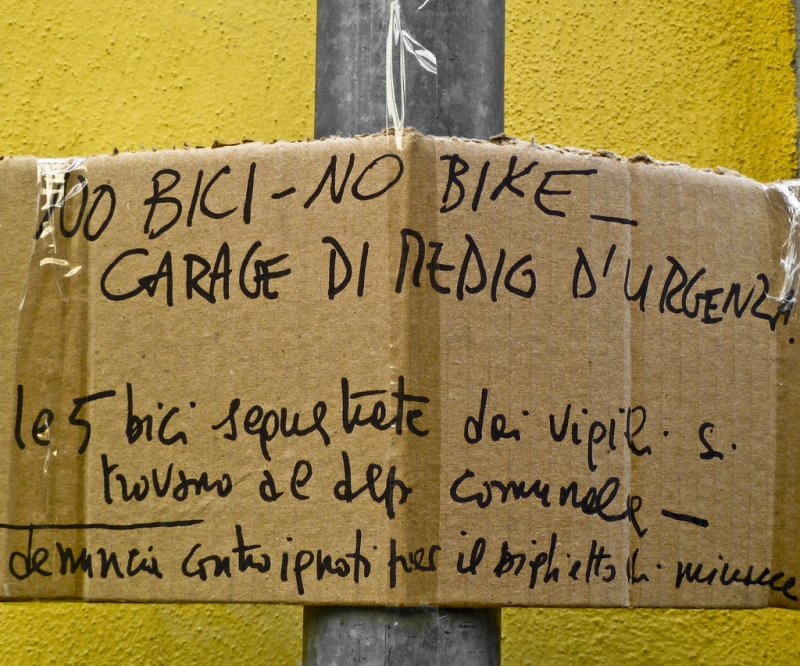 NO BICI - NO BIKE _
GARAGE DI MEDIO D'URGENZA.
le 5 bici sequestrate dai vigili si
trovano al dep. comunale _
denuncia contro ignoti per il biglietto di minacce